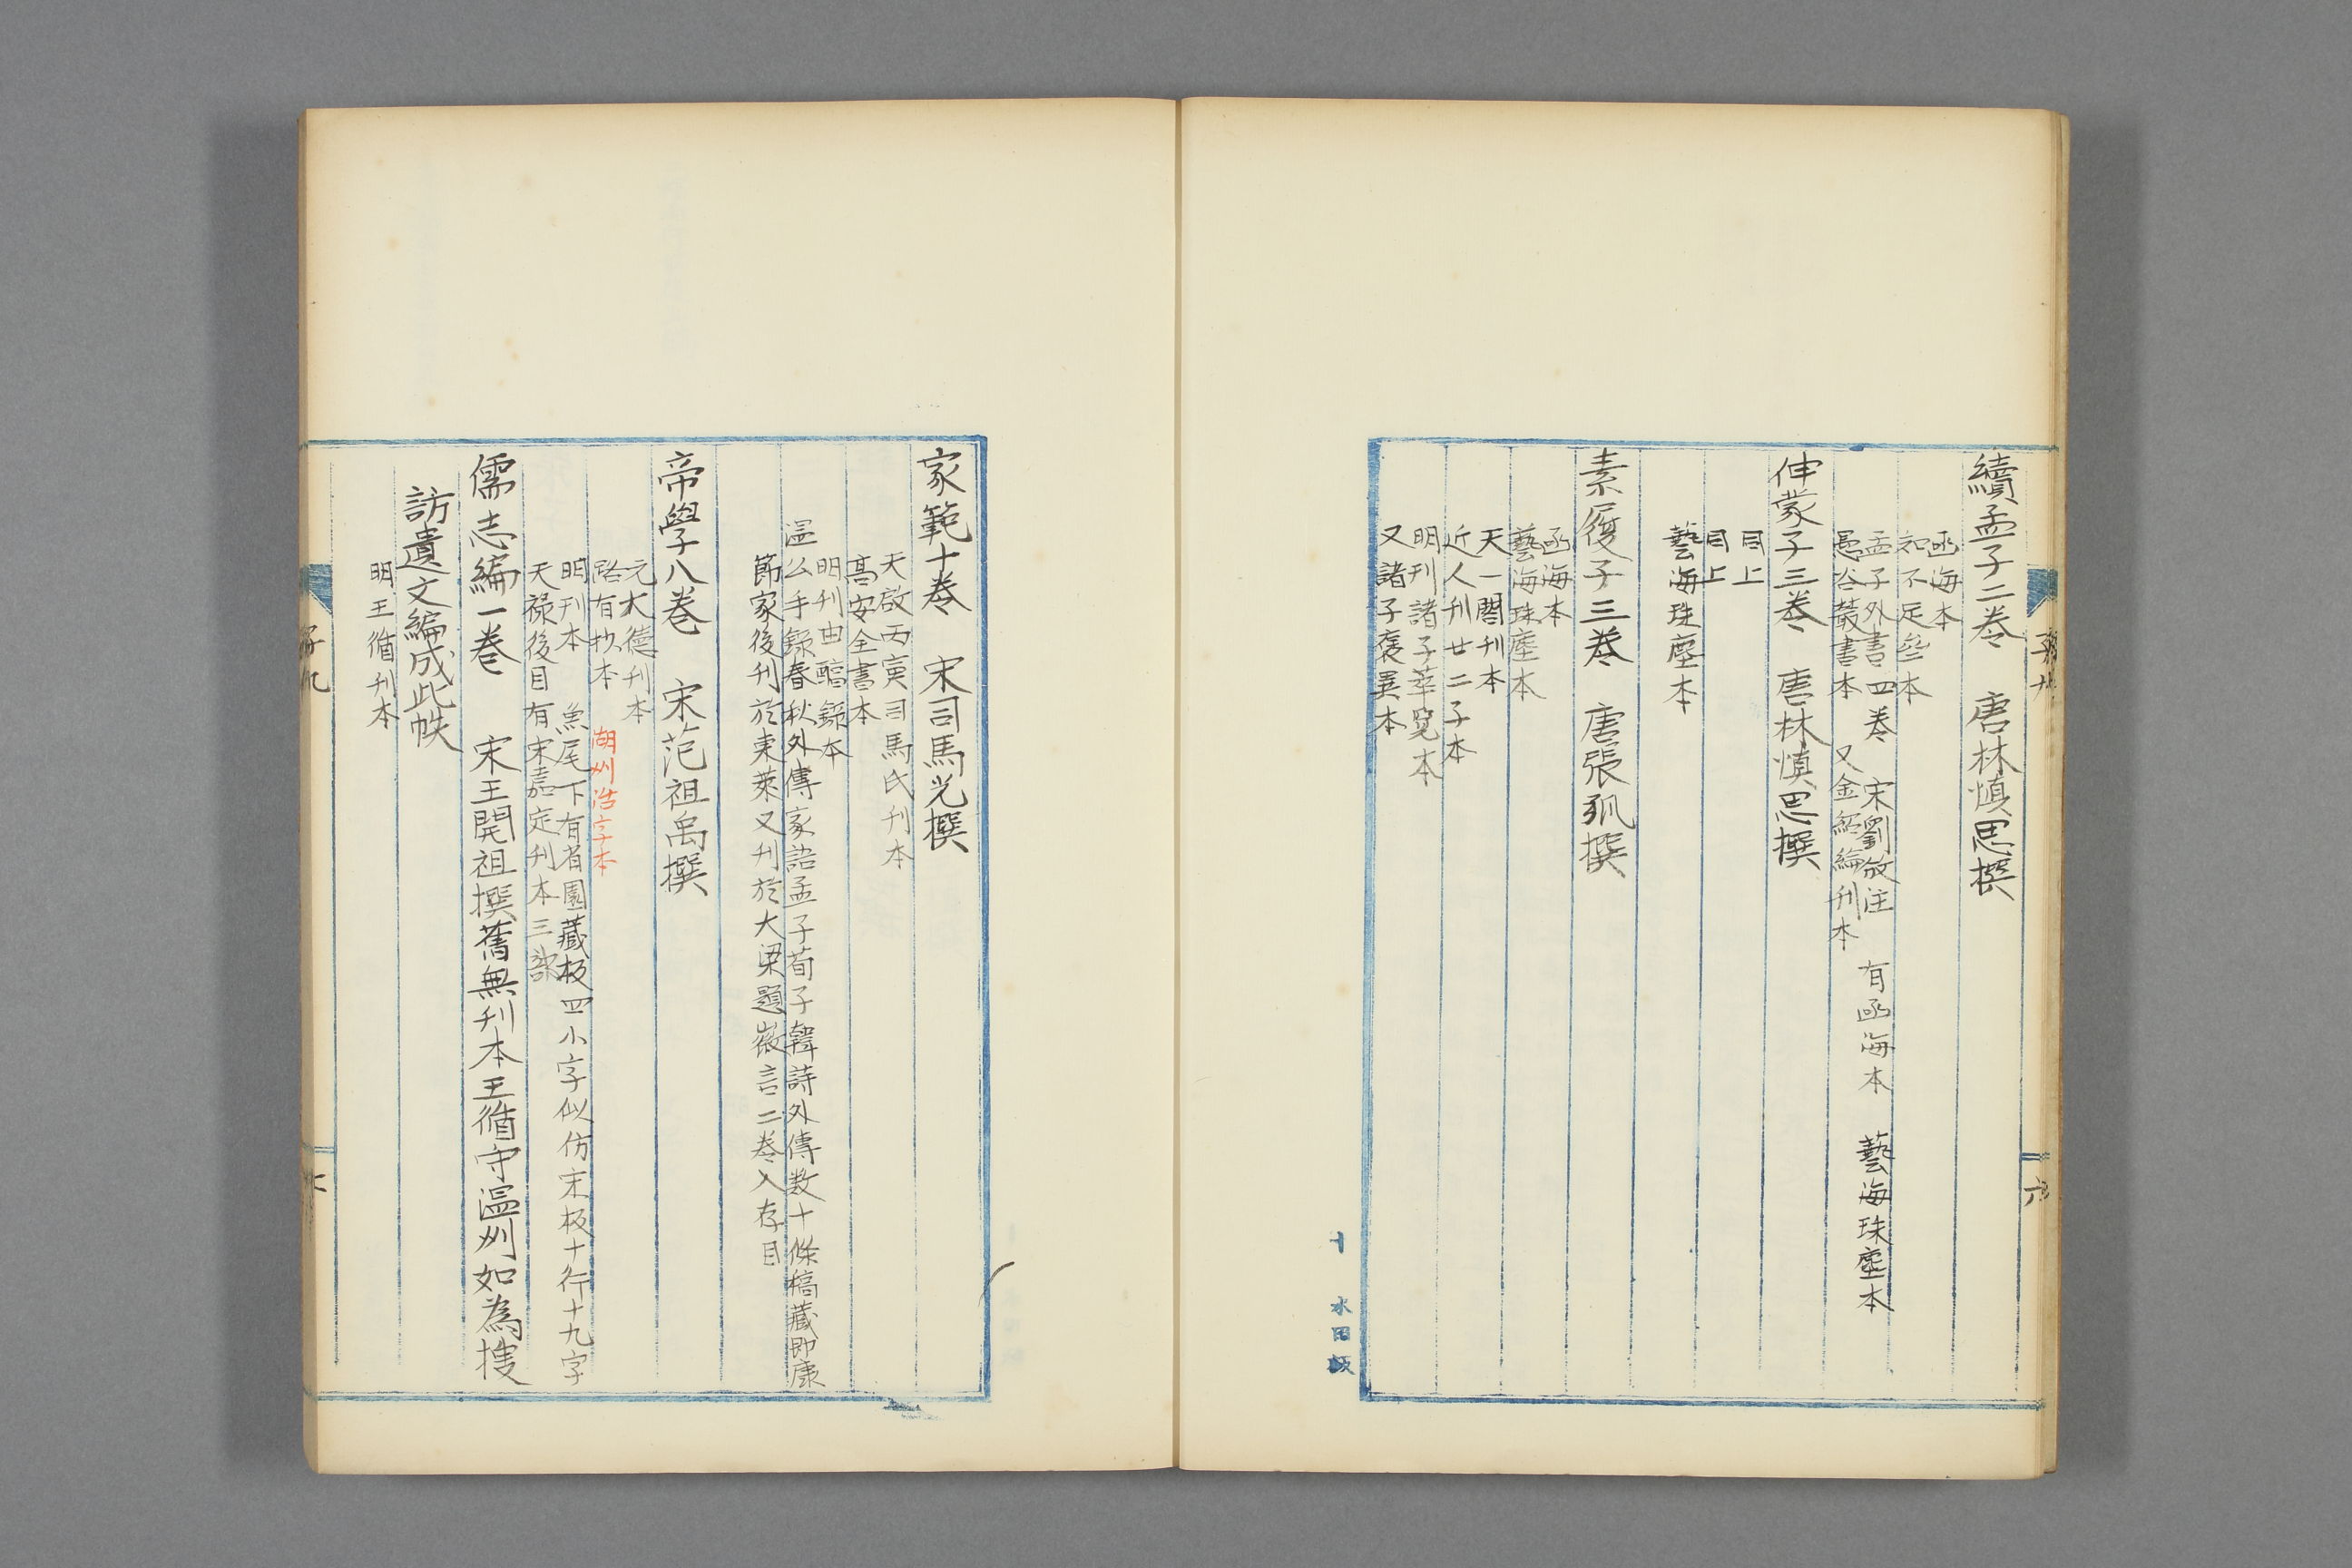 續孟子二卷　唐林慎思撰
函海本
知不足叁本
孟子外書四卷　宋劉攽注　有函海本　藝海珠塵本
愚谷叢書本　又金紹綸刊本
伸蒙子三卷　唐林慎思撰
目上
目上
藝海珠塵本
素履子三卷　唐張弧撰
函海本
藝海珠塵本
天一閣刊本
近人刊廿二子本
明刊諸子萃覽本
又諸子褒異本
六
水田版
家範十卷　宋司馬光撰
天啟丙寅司馬氏刊本
高安全書本
明刊由醕錄本
溫公手錄春秋外傳家語孟子荀子韓詩外傳数十條稿藏即康
節家後刊於東萊又刊於大梁題徽言二卷入存目
帝學八卷　宋范祖禹撰
元大德刊本
路有抄本　湖州浩字本
明刊本　魚尾下有省園藏板四小字似仿宋板十行十九字
天祿後目有宋嘉定刊本三部
儒志編一卷　宋王開祖撰舊無刊本王循守溫州如為搜
訪遺文編成此帙
明王循刊本